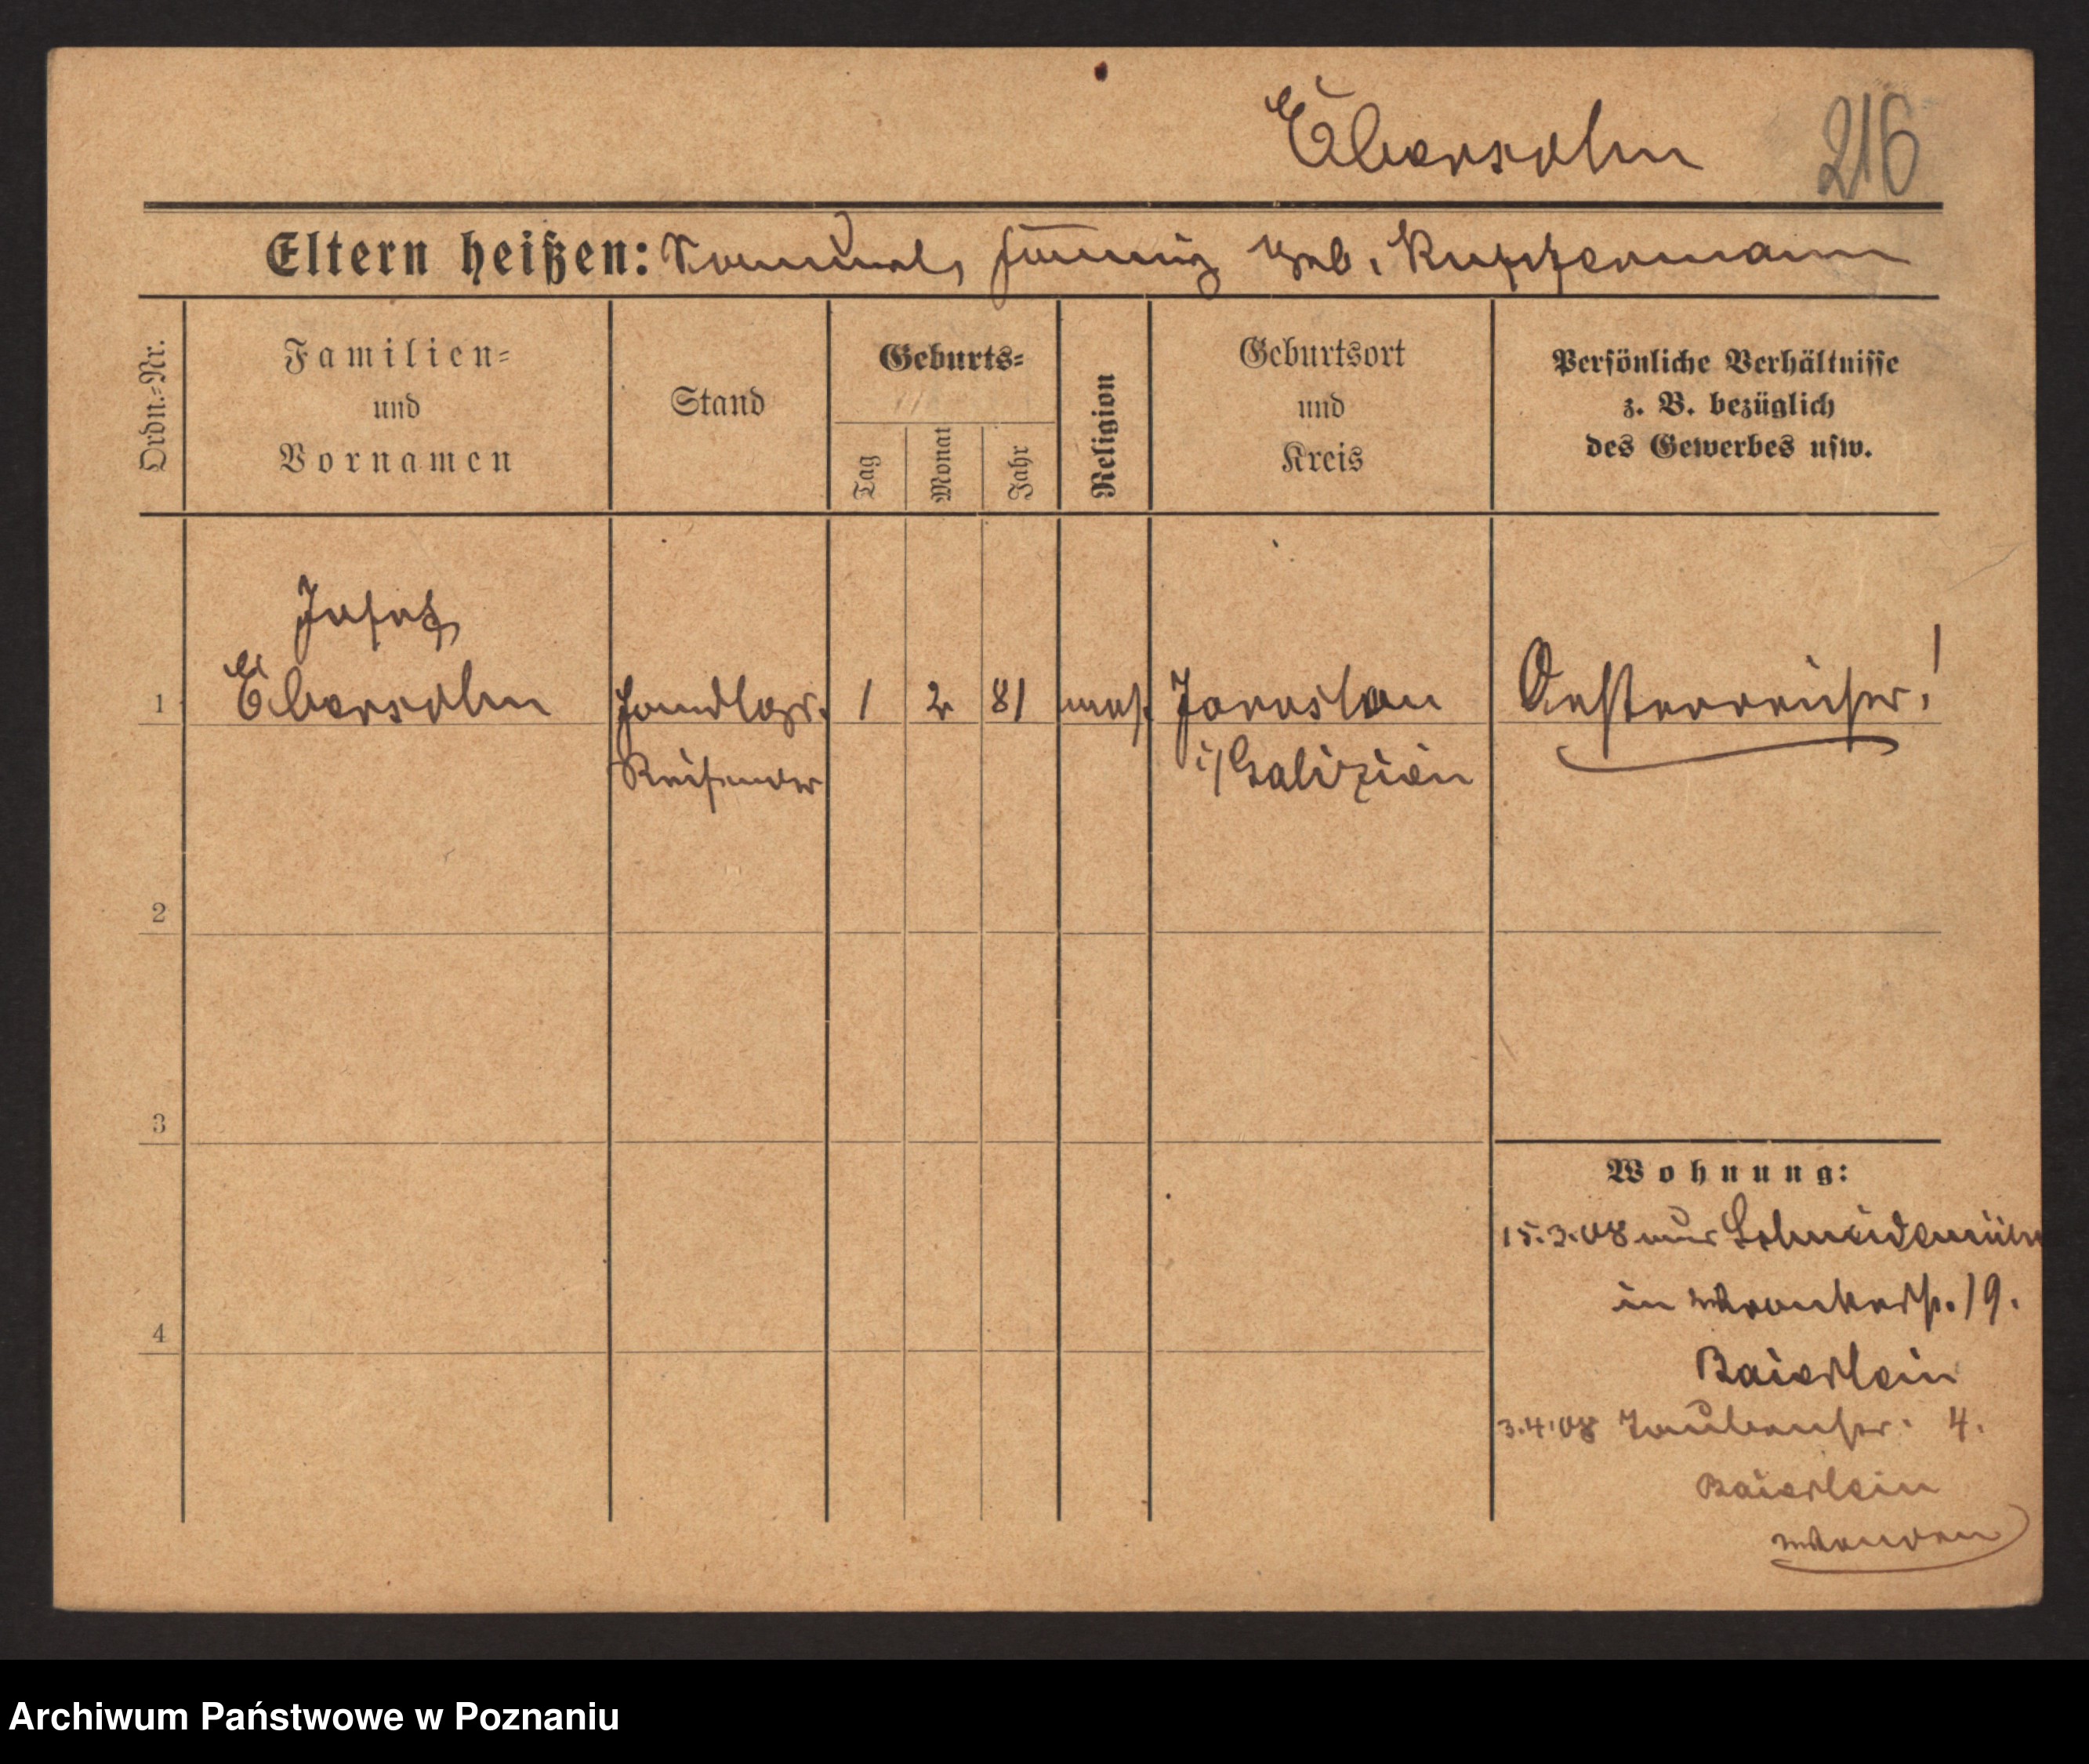 Ebersohn 216
Eltern heißen: Samuel, Fanny geb. Kupfermann
Ordn.-Nr.
Familien-
und
Vornamen
Stand
Geburts-
Tag
Monat
Jahr
Religion
Geburtsort
und
Kreis
Persönliche Verhältnisse
z. B. bezüglich
des Gewerbes usw.
Josef
1 Ebersohn Handlgs. 1 2 81 mos. Jaroslau Oesterreicher!
Reisender i/Galizien
2
3
4
Wohnung:
15.3.08 aus Schneidemühl
in Wronkerstr. 19.
Baierlein
3.4.08 Taubenstr. 4.
Baierlein
Archiwum Państwowe w Poznaniu